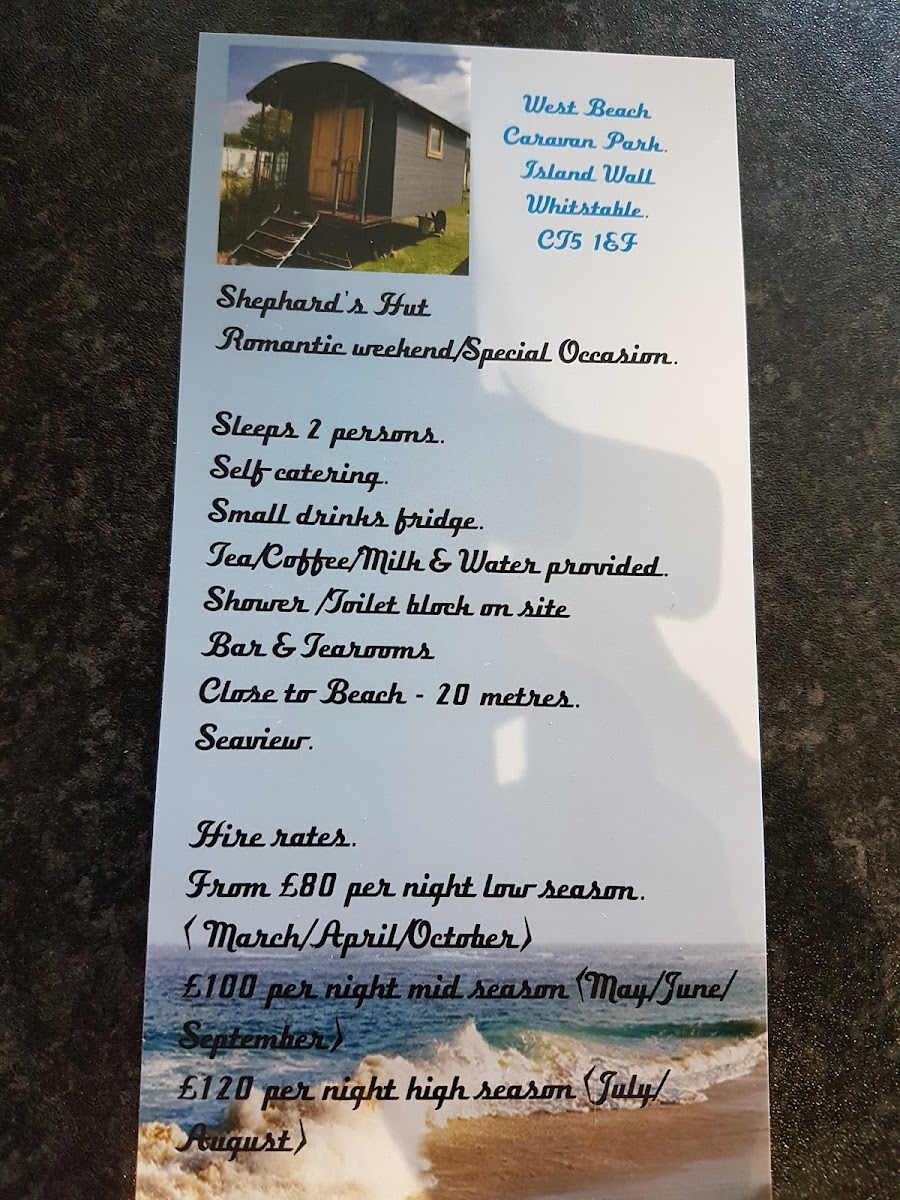 West Beach
Caravan Park.
Island Wall
Whitstable.
CT5 1EF
Shephard's Hut
Romantic weekend/Special Occasion.
Sleeps 2 persons.
Self catering.
Small drinks fridge.
Tea/Coffee/Milk & Water provided.
Shower /Toilet block on site
Bar & Tearooms
Close to Beach - 20 metres.
Seaview.
Hire rates.
From £80 per night low season.
( March/April/October)
£100 per night mid season (May/June/
September)
£120 per night high season (July/
August)